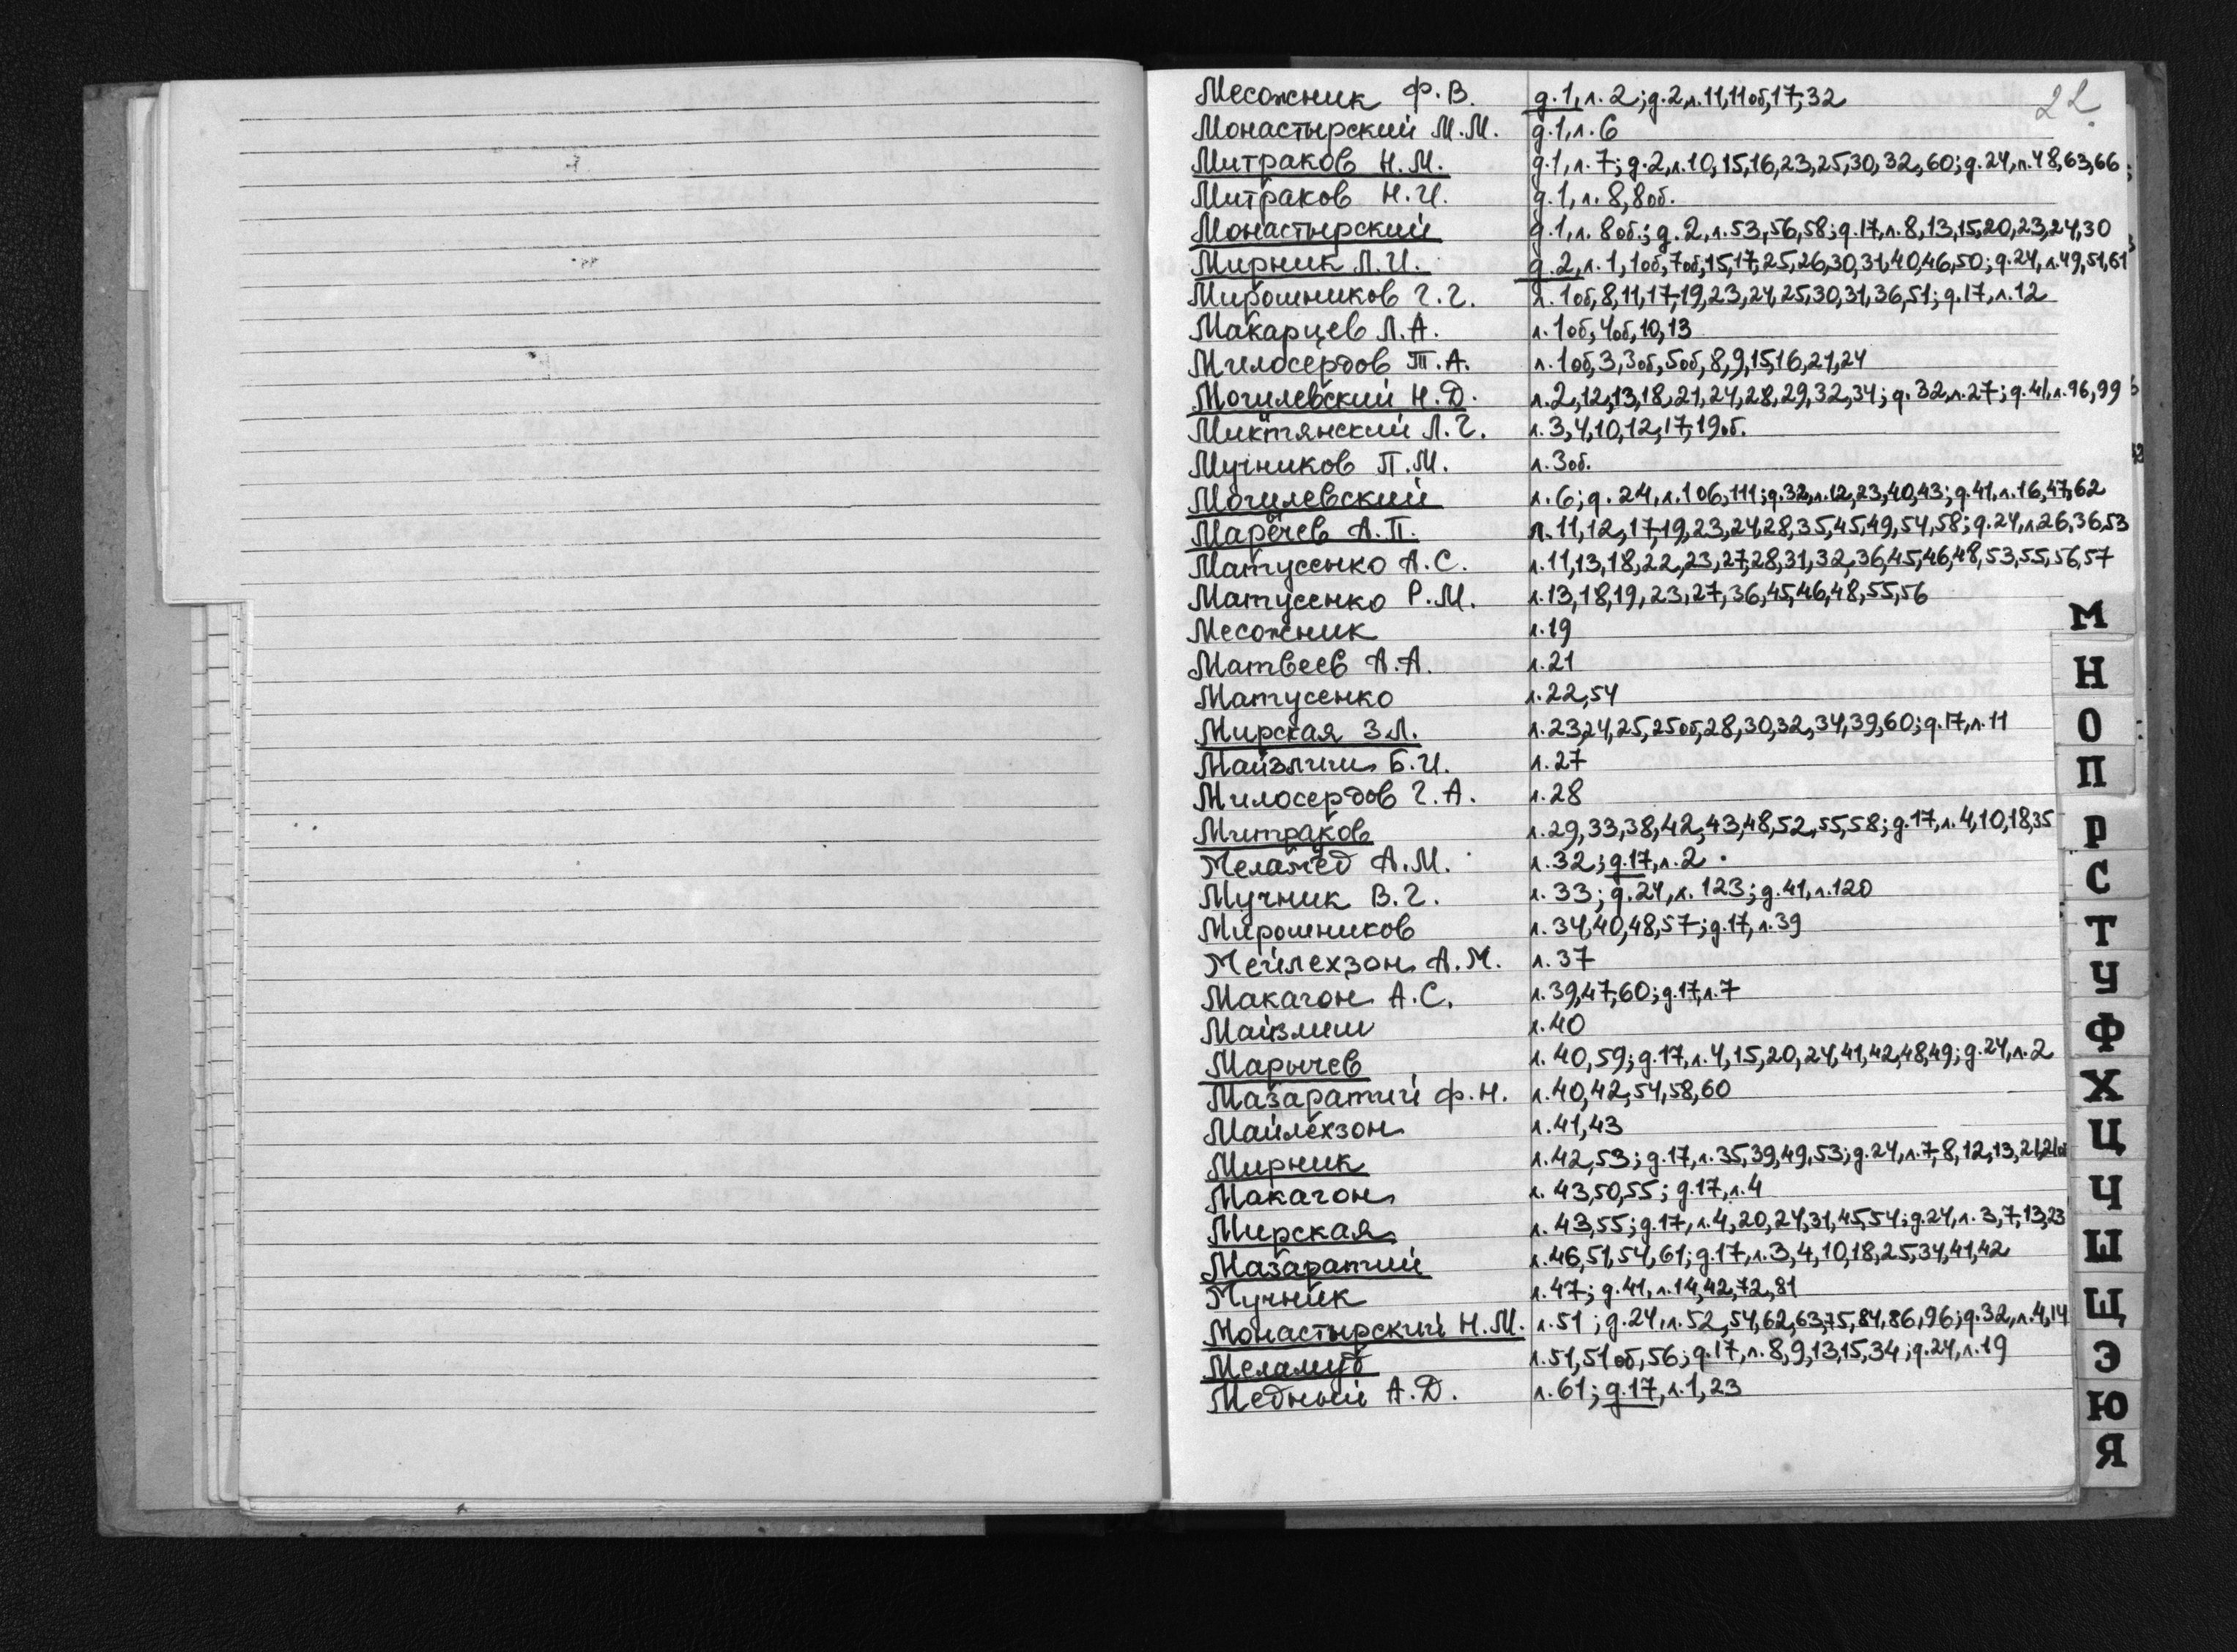 22
Месожник Ф.В. д.1,л.2;д.2,л.11,11об,17,32
Монастырский М.М. д.1,л.6
Митраков Н.М. д.1,л.7;д.2,л.10,15,16,23,25,30,32,60;д.24,л.48,63,66
Митраков Н.И. д.1,л.8,8об.
Монастырский д.1,л.8об.;д.2,л.53,56,58;д.17,л.8,13,15,20,23,24,30
Мирник Л.И. д.2,л.1,1об,7об,15,17,25,26,30,31,40,46,50;д.24,л.49,51,61
Мирошников Г.Г. л.1об,8,11,17,19,23,24,25,30,31,36,51;д.17,л.12
Макарцев Л.А. л.1об,4об,10,13
Милосердов Т.А. л.1об,3,3об,5об,8,9,15,16,21,24
Могилевский Н.Д. л.2,12,13,18,21,24,28,29,32,34;д.32,л.27;д.41,л.96,99
Микитянский Л.Г. л.3,4,10,12,17,19об.
Мучников П.М. л.3об.
Могилевский л.6;д.24,л.106,111;д.32,л.12,23,40,43;д.41,л.16,47,62
Марычев А.П. л.11,12,17,19,23,24,28,35,45,49,54,58;д.24,л.26,36,53
Матусенко А.С. л.11,13,18,22,23,27,28,31,32,36,45,46,48,53,55,56,57
Матусенко Р.М. л.13,18,19,23,27,36,45,46,48,55,56
Месожник л.19
Матвеев А.А. л.21
Матусенко л.22,54
Мирская З.Л. л.23,24,25,25об,28,30,32,34,39,60;д.17,л.11
Майзлиш Б.И. л.27
Милосердов Г.А. л.28
Митраков л.29,33,38,42,43,48,52,55,58;д.17,л.4,10,18,35
Меламед А.М. л.32;д.17,л.2
Мучник В.Г. л.33;д.24,л.123;д.41,л.120
Мирошников л.34,40,48,57;д.17,л.39
Мейлехзон А.М. л.37
Макагон А.С. л.39,47,60;д.17,л.7
Майзлиш л.40
Марычев л.40,59;д.17,л.4,15,20,24,41,42,48,49;д.24,л.2
Мазаратий Ф.Н. л.40,42,54,58,60
Майлехзон л.41,43
Мирник л.42,53;д.17,л.35,39,49,53;д.24,л.7,8,12,13,21,21об
Макагон л.43,50,55;д.17,л.4
Мирская л.43,55;д.17,л.4,20,24,31,45,54;д.24,л.3,7,13,23
Мазаратий л.46,51,54,61;д.17,л.3,4,10,18,25,34,41,42
Мучник л.47;д.41,л.14,42,72,81
Монастырский Н.М. л.51;д.24,л.52,54,62,63,75,84,86,96;д.32,л.4,14
Меламуд л.51,51об,56;д.17,л.8,9,13,15,34;д.24,л.19
Медный А.Д. л.61;д.17,л.1,23
М
Н
О
П
Р
С
Т
У
Ф
Х
Ц
Ч
Ш
Щ
Э
Ю
Я